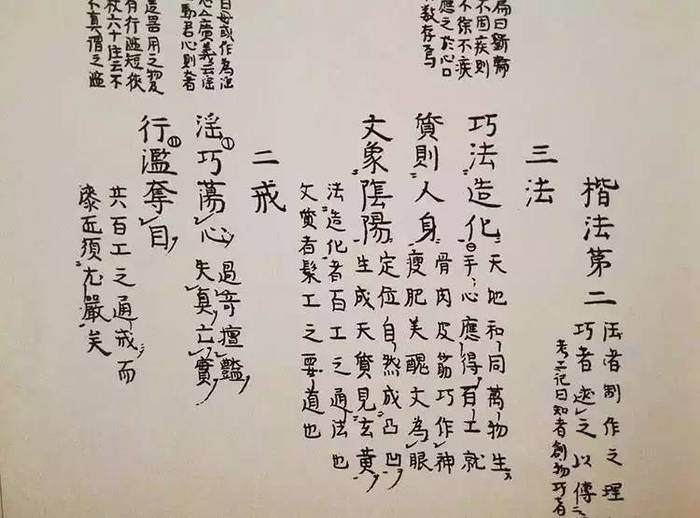 扁曰斲輪
不固疾則
不徐不疾
應之於心口
數存焉
曰母或作為淫
廣義云淫
動君心則者
器用之物
有行濫短狹
杖六十注云不
不真謂之濫
楷法第二
法者制作之理
巧者述之以傳之
考工記曰知者創物巧者
三法
巧法造化
天地和同萬物生
手心應得百工就
質則人身
骨肉皮筋巧作神
瘦肥美醜文為眼
文象陰陽
定位自然成凸凹
生成天質見玄黃
法造化者百工之通法也
文質者髹工之要道也
二戒
淫巧蕩心
過奇擅豔
失真亡實
行濫奪目
共百工之通戒而
漆匠須尤嚴矣